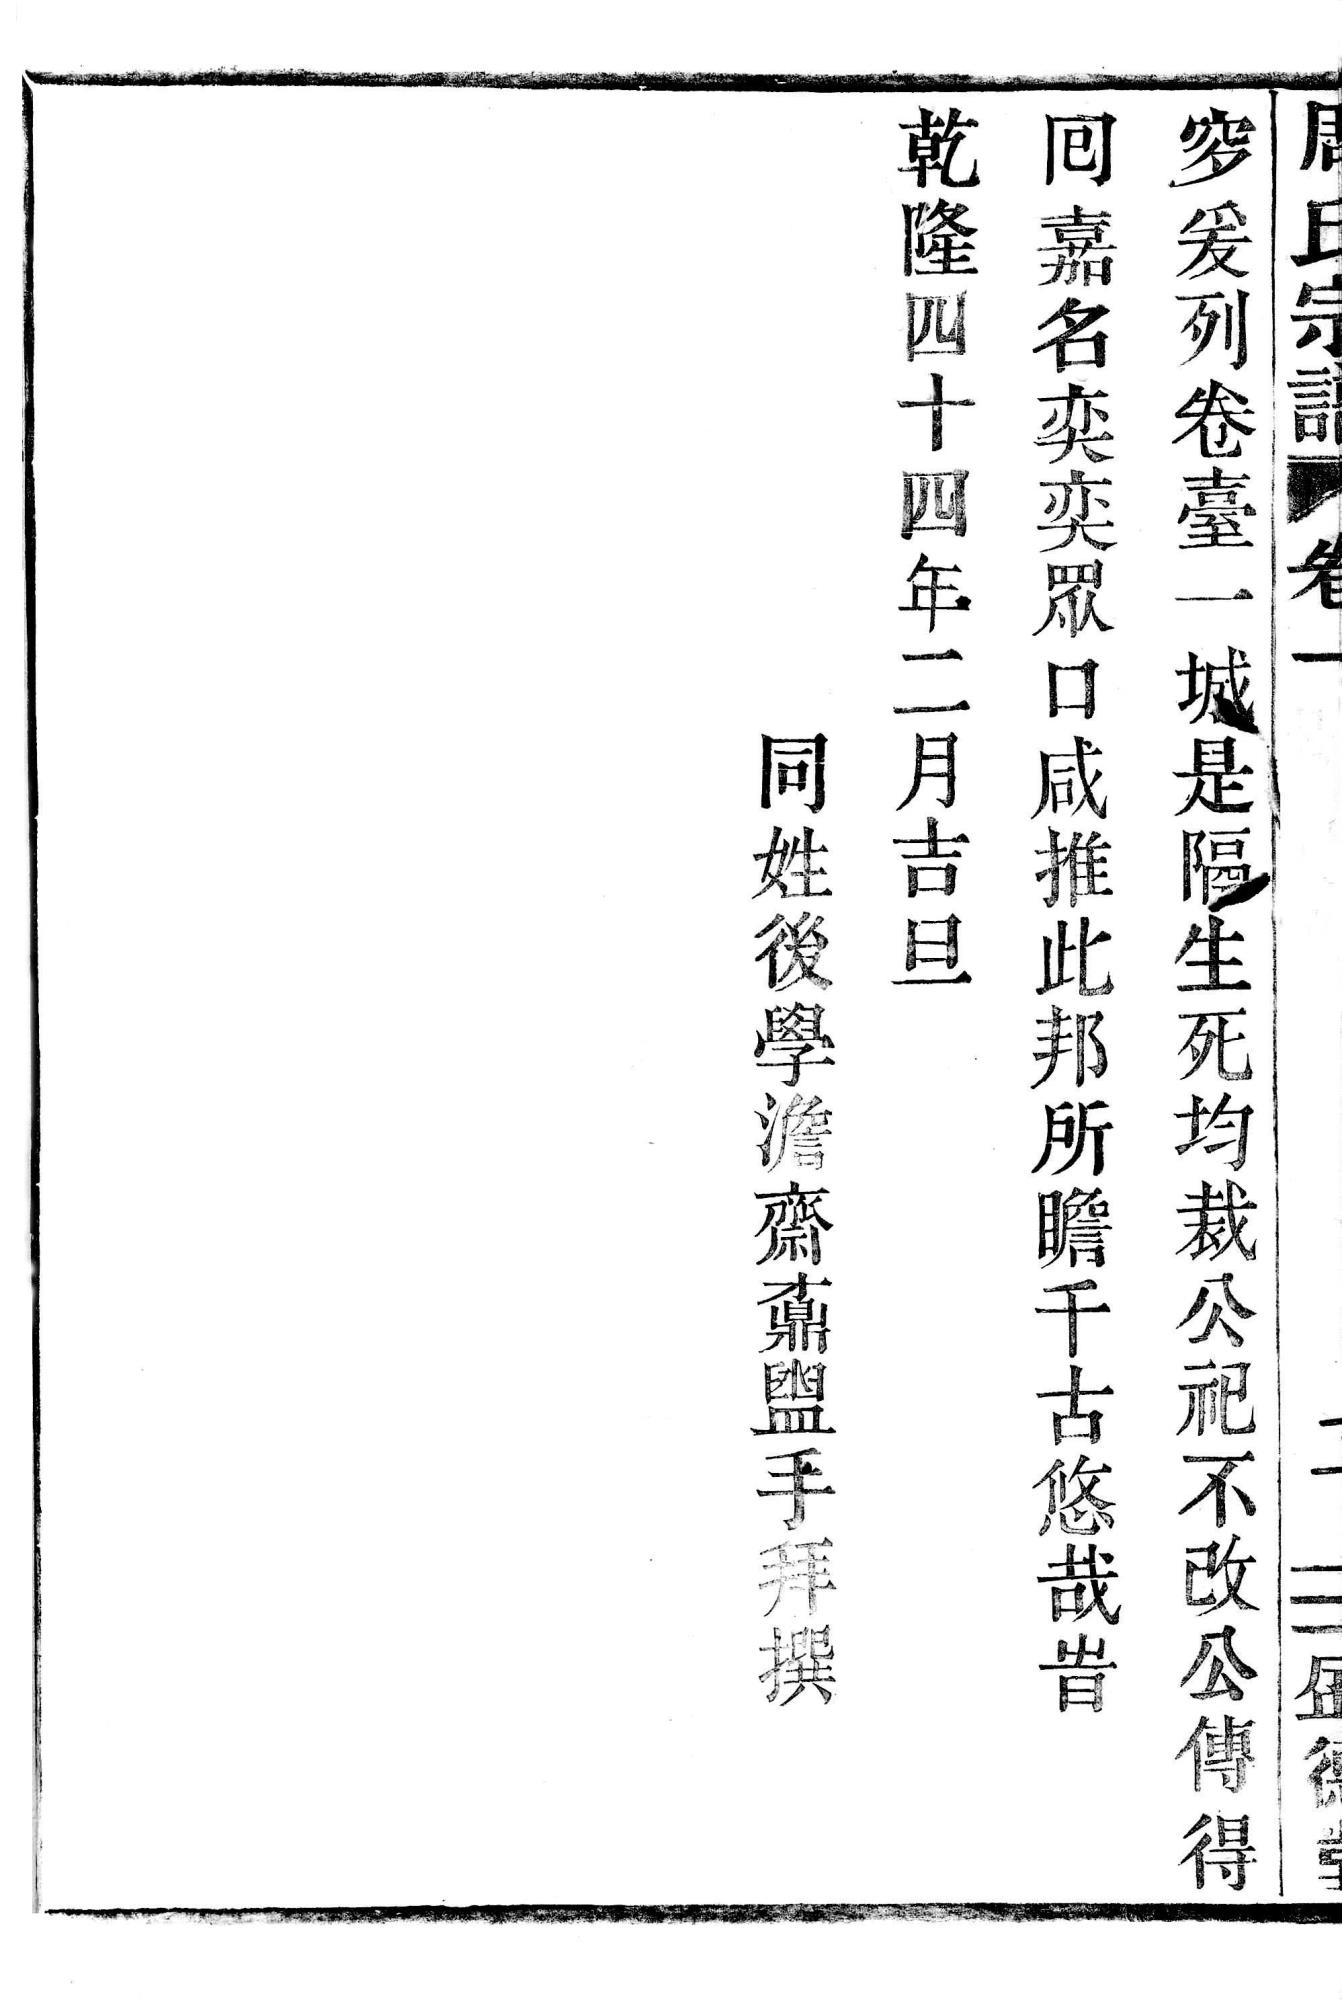 周氏宗譜 卷一 盛德堂
穸爰列卷臺一城是隔生死均裁公祀不改公傳得
囘嘉名奕奕眾口咸推此邦所瞻千古悠哉旹
乾隆四十四年二月吉旦
同姓後學澹齋鼒盥手拜撰